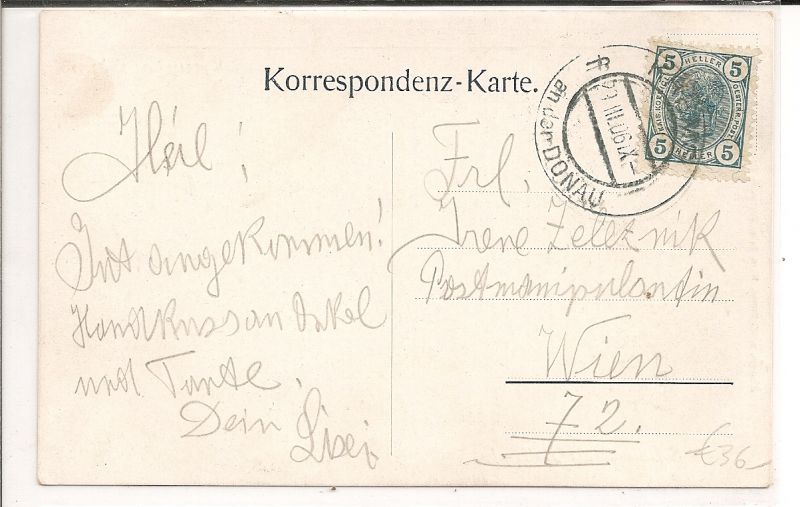 Korrespondenz-Karte.
Heil!
Gut angekommen!
Handkuss an Onkel
und Tante.
Dein Lisei
Frl.
Irene Zeleznik
Postmanipulantin
Wien
72.
€36
an der DONAU
29 III.06.IX
5 HELLER 5
5 HELLER 5